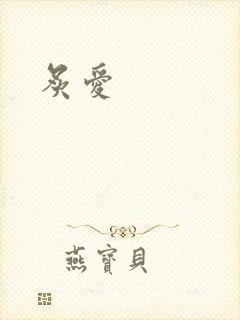 炙愛
燕寶貝